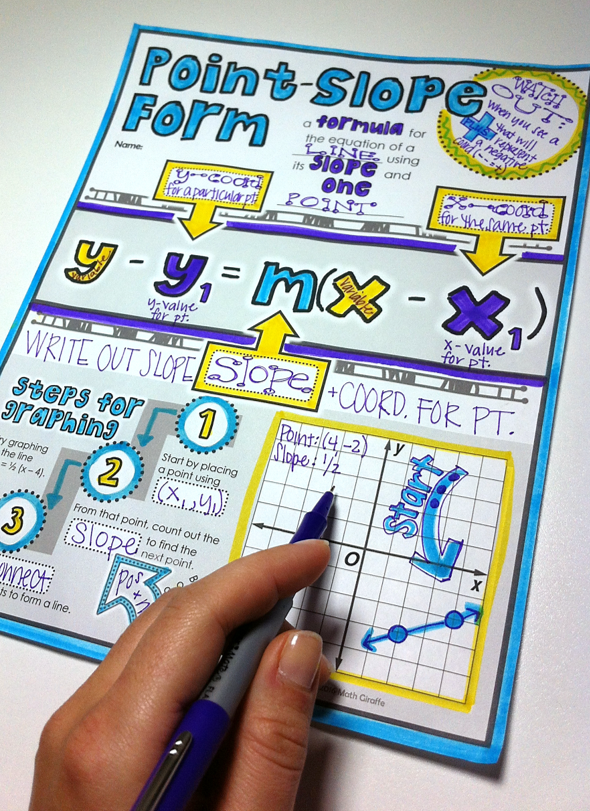 Point-Slope
Form
WATCH
OUT:
When you see a
PLUS
that will
represent
a negative
Name:
a formula for
the equation of a
LINE using
its slope and
one
POINT
y-coord
for a particular pt.
x-coord
for the same pt.
y - y1 = m(x - x1)
variable
variable
y-value
for pt.
x-value
for pt.
WRITE OUT SLOPE
Slope
+COORD. FOR PT.
Steps for
graphing
1
2
3
graphing
the line
= ½ (x – 4).
Start by placing
a point using
(x1, y1)
From that point, count out the
slope to find the
next point.
connect
to form a line.
pos
Point: (4, -2)
Slope: 1/2
Start
y
x
O
Math Giraffe